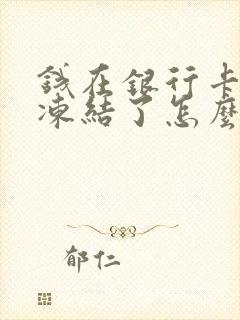 錢在銀行卡
凍結了怎麼
郁仁